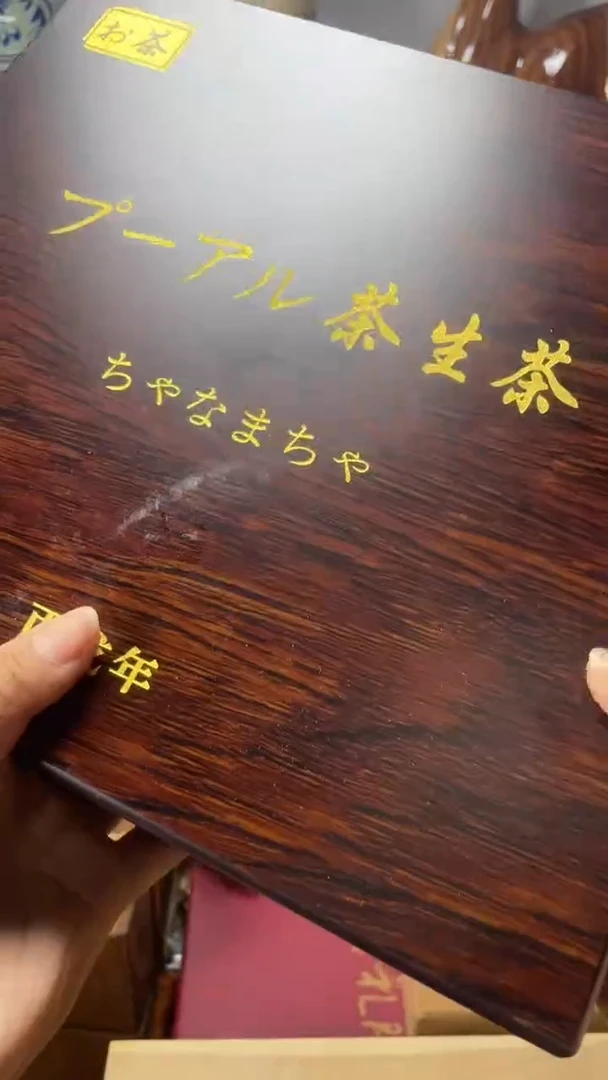 お茶
プーアル茶生茶
ちゃなまちゃ
年
礼